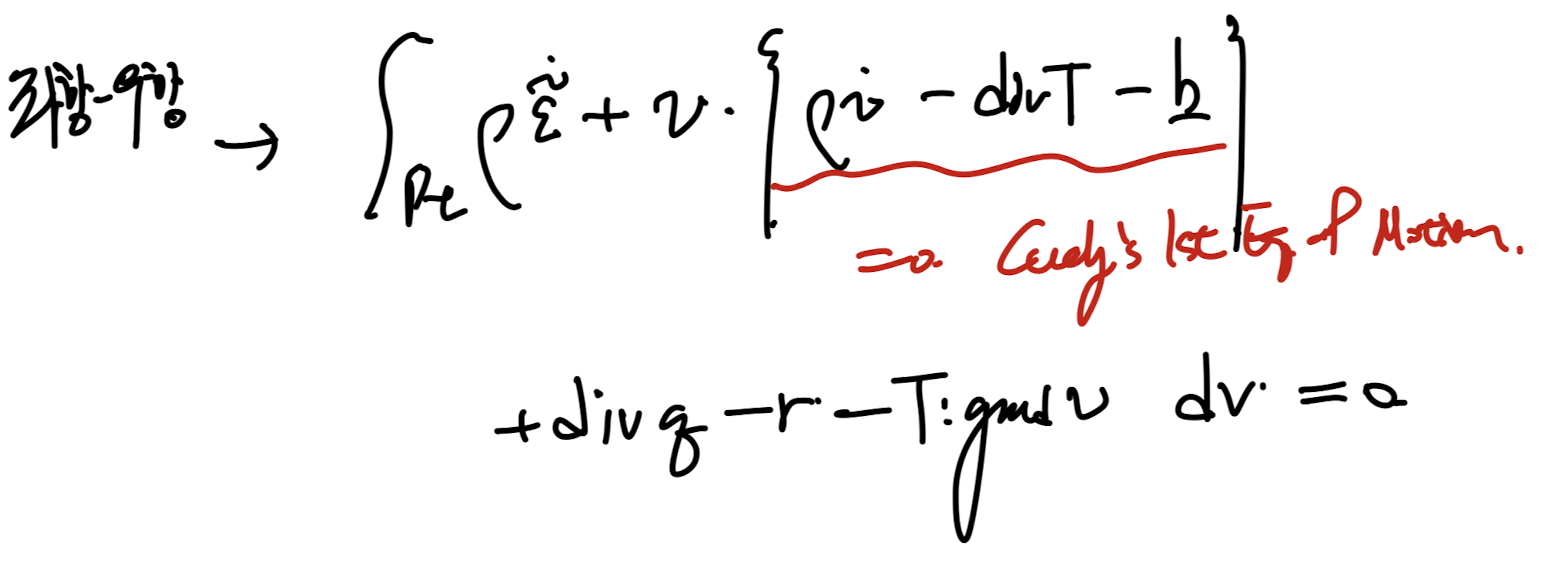 좌항-우항 → ∫_{P_t} ρ\dot{\tilde{ε}} + v · { ρ\dot{v} - div T - b }
= 0. Cauchy's 1st Eq of Motion.
+ div q - r - T : grad v dv = 0